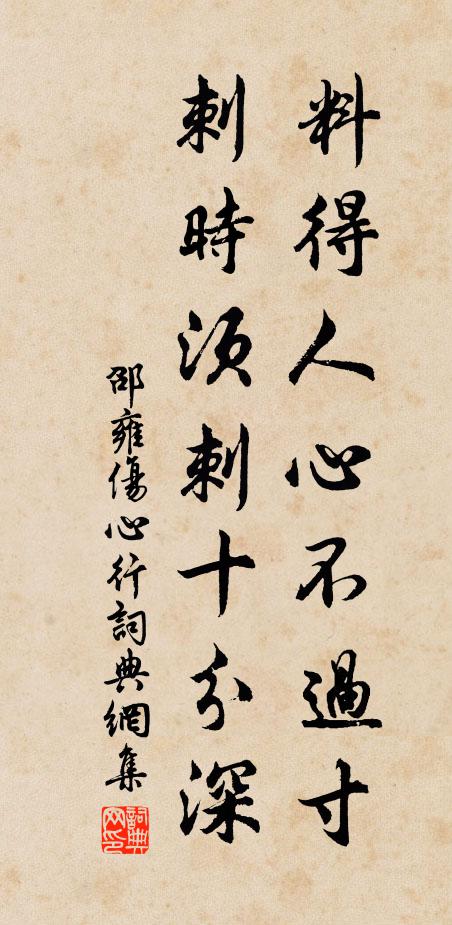 料得人心不過寸
刺時須刺十分深
邵雍傷心行詞典網集
詞典网印